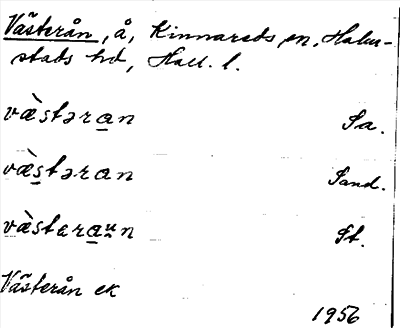 Västerån, å, Kinnareds sn, Halm-
stads hd, Hall. l.
væ̀stəran Sa.
væ̀stəran Sand.
væ̀staraun St.
Västerån ek
1956